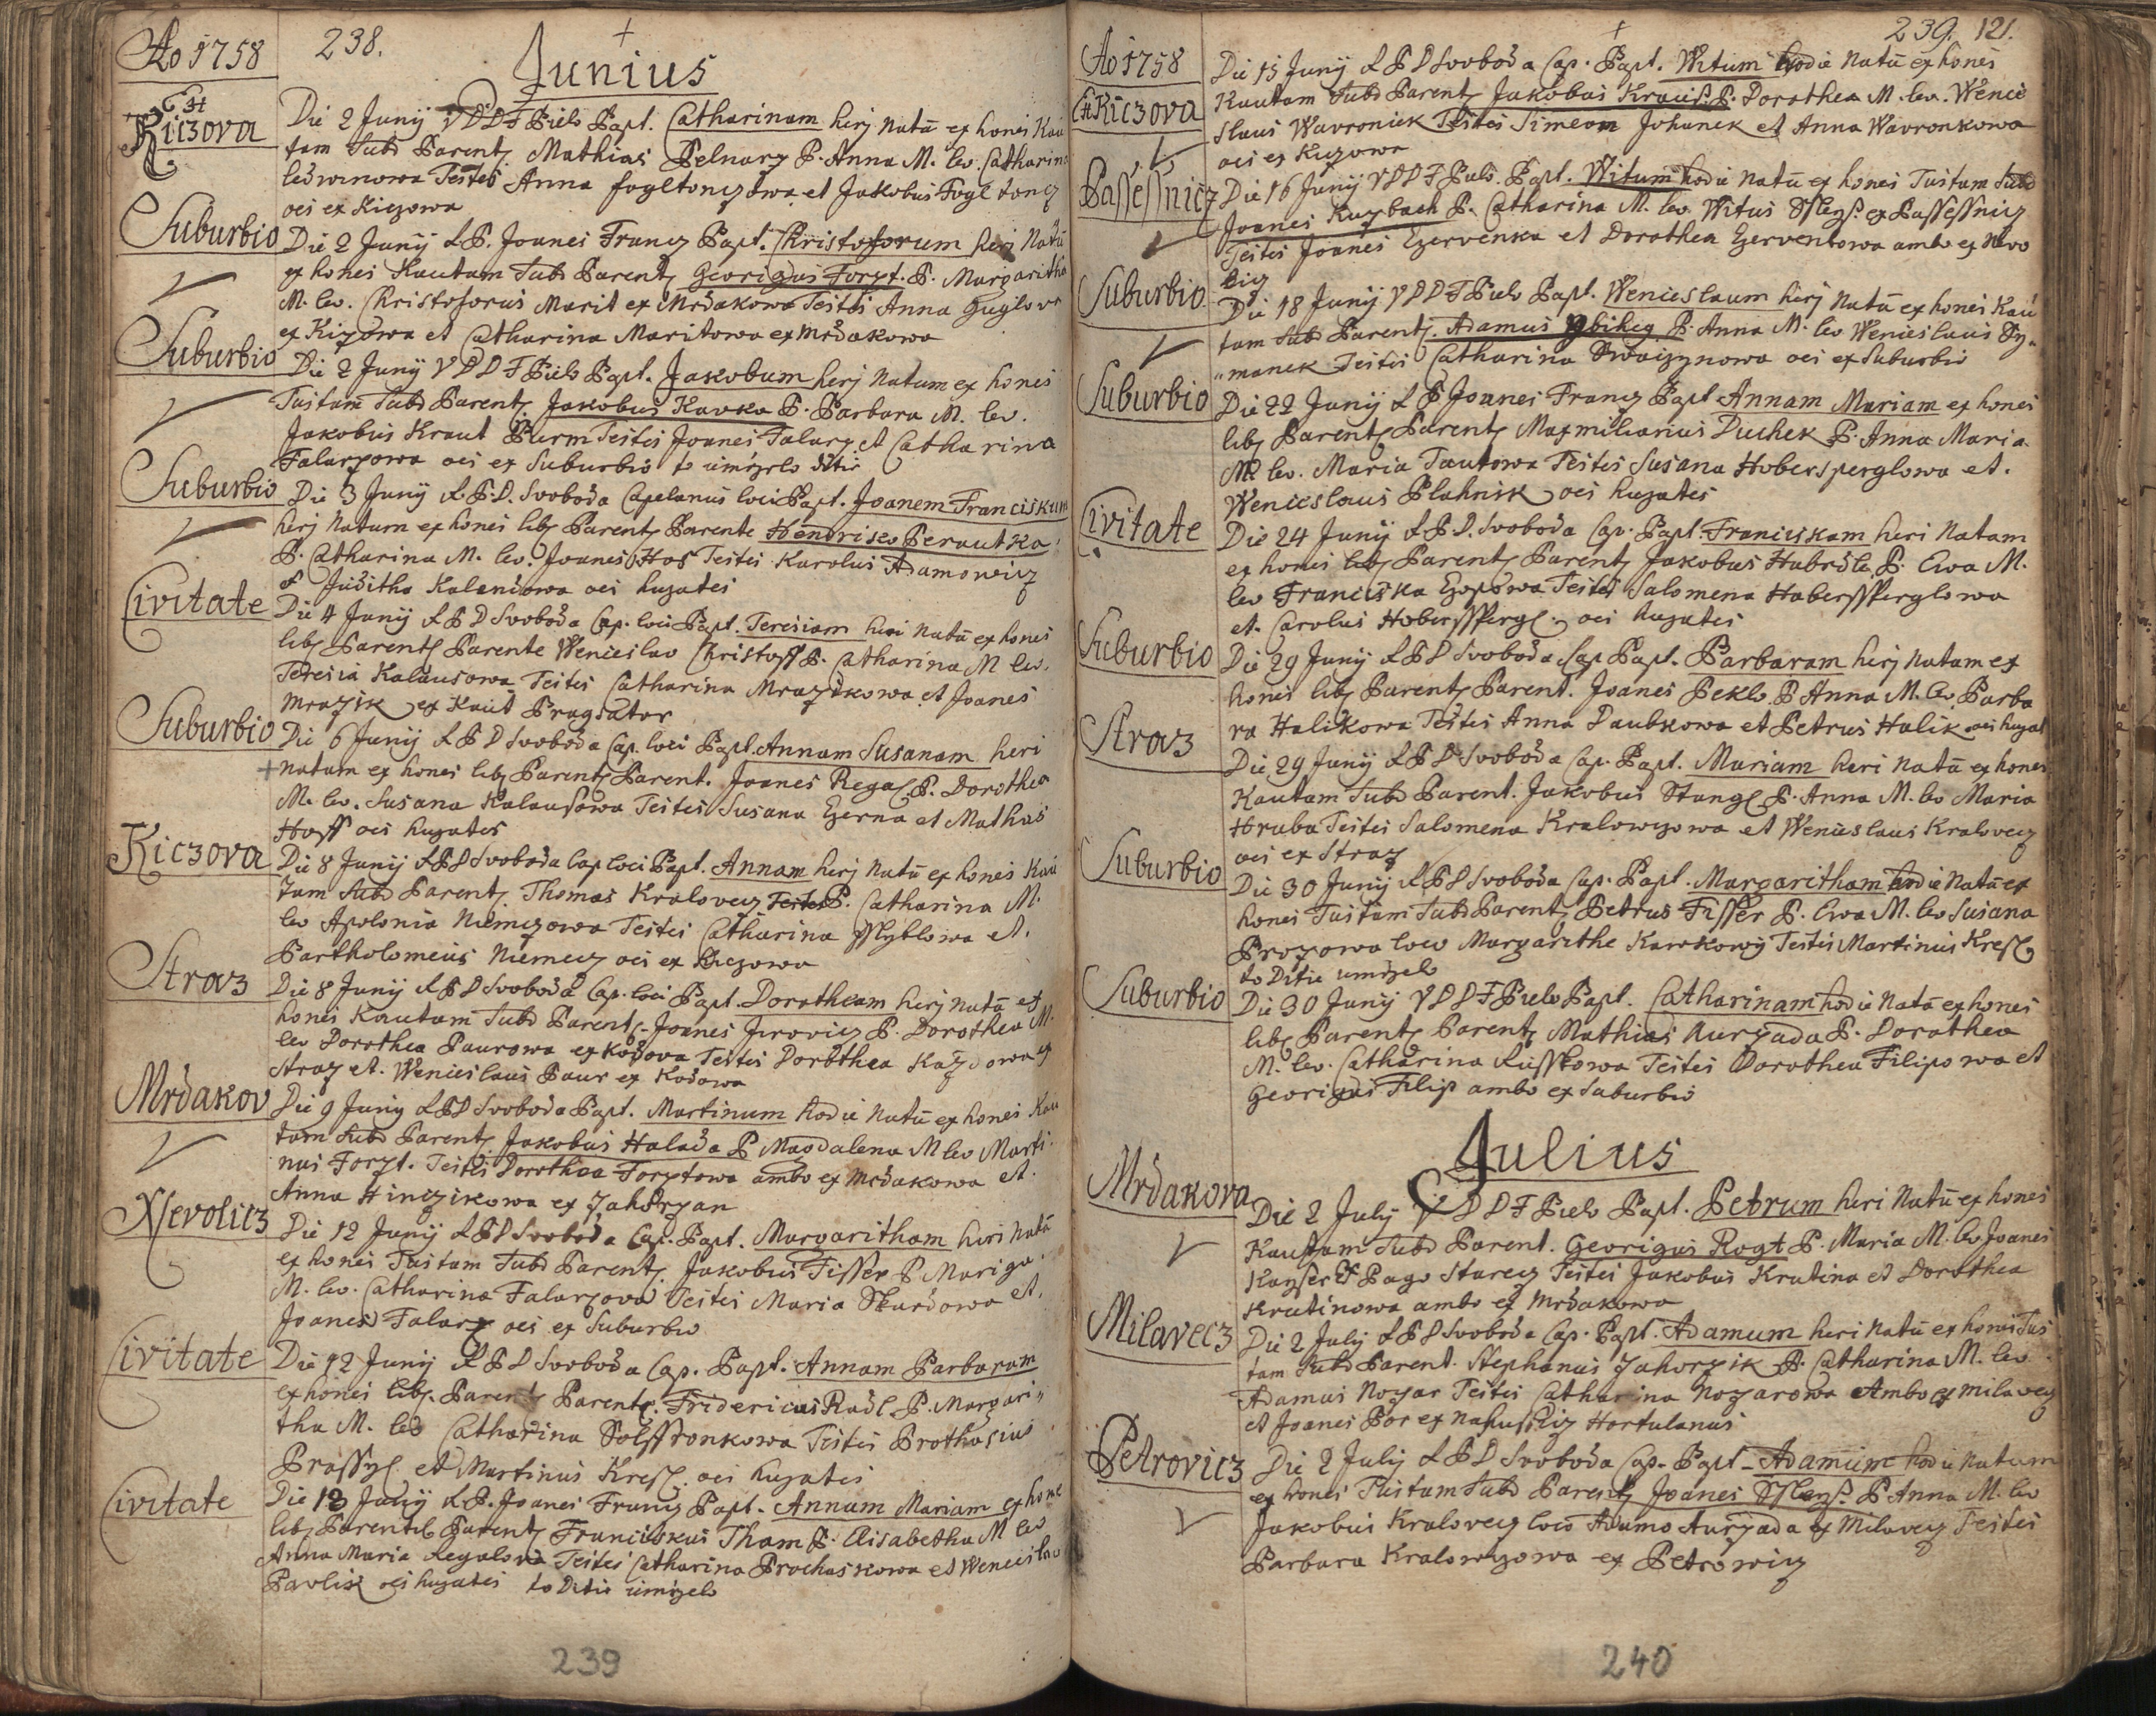 Ao 1758
238.
Junius
Kiczova
Die 2 Junij V D D F Pielo Bapt. Catharinam herj Natū ex honeš Kau
tam Subd Parent. Mathias Pelnarz P. Anna M. lev. Catharina
Testes Anna et Jakobus Fogltoncz
oes ex Kiczowa
Suburbio
Die 2 Junij A.P. Joanes Francz Bapt. Christoforum heri Natū
ex hones Kautam Subd Parent. Georigius Forzt. P. Margaritha
M. lev. Christoforus Marit ex Mrdakowa Testes Anna Guglova
ex Kizowa et Catharina Maritowa ex Mrdakowa
Suburbio
Die 2 Junij V D D F Pielo Bapt. Jakobum herj Natum ex hones
Tustam Subd Parent. Jakobus Kavka P. Barbara M. lev.
Jakobus Kraut Burm Testes Joanes Falarz et Catharina
Falarzowa oes ex Suburbio to umrzelo ditie
Suburbio
Die 3 Junij A.P.D. Svoboda Capelanus loci Bapt. Joanem Franciskum
herj Natum ex hones lib. Parent Parente Hendrisko Berautka
P. Catharina M. lev. Joanes Hos Testes Karolus Adamowicz
et Juditha Kalendowa oes hujates
Civitate
Die 4 Junij A P D Svoboda Cap. loci Bapt. Teresiam heri Natū ex hones
lib. Parent Parente Wenceslao Christoff P. Catharina M lev.
Teresia Kalausowa Testes Catharina Mrazikowa et Joanes
Mrazik ex Kaut Pragsator
Suburbio
Die 6 Junij A P D Svoboda Cap. loci Bapt. Annam Susanam heri
natam ex hones lib. Parent Parent. Joanes Regal P. Dorothea
M. lev. Susana Kalausowa Testes Susana Czerna et Mathas
Hoff oes hujates
Kiczova
Die 8 Junij A P D Svoboda Cap loci Bapt. Annam herj Natū ex hones Kau
tam Subd Parent. Thomas Kralovecz P. Catharina M.
lev Apolonia Niemczowa Testes Catharina et.
Bartholomeus Niemecz oes ex Kiczowa
Straz
Die 8 Junij A P D Svoboda Cap. loci Bapt. Dorotheam herj Natū ex
hones Kautam Subd Parent. Joanes Jirovicz P. Dorothea M.
lev Dorothea Paurowa ex Kodova Testes Dorothea ex
Straz et. Wenceslaus Paur ex Kodowa
Mrdakov
Die 9 Junij A P D Svoboda Bapt. Martinum hodie Natū ex hones Kau
tam Subd Parent. Jakobus Halada P Magdalena M lev Marti-
nus Forzt. Testes Dorothea Forztowa ambo ex Mrdakowa et.
Anna Hinczikowa ex Zahorzan
Nevolicz
Die 12 Junij A P D Svoboda Cap. Bapt. Margaritham heri Natū
ex hones Tustam Subd Parent. Jakobus Fisser P Mariga
M. lev. Catharina Falarzova Testes Maria Skardowa et.
Joanes Falarz oes ex Suburbio
Civitate
Die 12 Junij A P D Svoboda Cap. Bapt. Annam Barbaram
ex hones lib. Parent Parent. Fridericus Radl P. Margari„
tha M. lev Catharina Testes Prothasius
et Martinus Kresl. oes hujates
Civitate
Die 13 Junij A.P. Joanes Francz Bapt. Annam Mariam ex hone
lib. Parent Parent. Franciskus Tham P. Elisabetha M lev
Anna Maria Regalova Testes Catharina Prochaskowa et Wenceslav
Pavlik oes hujates to Ditie umrzelo
239
239. 121.
Ao 1758
Kiczova
Die 15 Junij A P D Svoboda Cap. Bapt. Witum hodie Natū ex hones
Kautam Subd Parent. Jakobus Kraus. P. Dorothea M. lev. Wence
slaus Wavroniek Testes Simeon Johanek et Anna Wavronkowa
oes ex Kuzowa
Passessnicz
Die 16 Junij V D D F Pielo. Bapt. Witum hodie Natū ex hones Tustam Subd
Joanes Kuzbach P. Catharina M. lev. Witus Sslegs. ex Passessnicz
Testes Joanes Czervenka et Dorothea Czervenkowa ambo ex Nevo
licz
Suburbio
Die 18 Junij V D D F Pielo Bapt. Wenceslaum herj Natū ex hones Kau
tam Subd Parent. Adamus P. Anna M. lev Wenceslaus Sy„
„manek Testes Catharina oes ex Suburbio
Suburbio
Die 22 Junij A P Joanes Francz Bapt Annam Mariam ex hones
lib. Parent Parent Maxmilianus Duchek P. Anna Maria
M. lev. Maria Tautowa Testes Susana Habersperglowa et.
Wenceslaus Plahnik oes hujates
Civitate
Die 24 Junij A P D Svoboda Cap. Bapt. Franciskam heri Natam
ex hones lib. Parent Parent Jakobus Habrdle P. Ewa M.
lev Franciska Czopowa Testes Salomena Habersperglowa
et. Carolus Habersperg. oes hujates
Suburbio
Die 29 Junij A P D Svoboda Cap Bapt. Barbaram herj Natam ex
hones lib. Parent Parent. Joanes Peklo P Anna M. lev Barba
ra Halikowa Testes Anna Daubkowa et Petrus Halik oes hujat
Straz
Die 29 Junij A P D Svoboda Cap. Bapt. Mariam heri Natū ex hones
Kautam Subd Parent. Jakobus Stangl P. Anna M. lev Maria
Hruba Testes Salomena Kralowczowa et Wenceslaus Kralovecz
oes ex Straz
Suburbio
Die 30 Junij A P D Svoboda Cap. Bapt. Margaritham hodie Natū ex
hones Tustam Subd Parent. Petrus Fisser P. Ewa M. lev Susana
Prozowa loco Margarithe Kawkowy Testes Martinus Kresl
to Ditie umrzelo
Suburbio
Die 30 Junij V D D F Pielo Bapt. Catharinam hodie Natū ex hones
lib. Parent Parent. Mathias Aurzada P. Dorothea
M. lev. Catharina Testes Dorothea Filipowa et
Georigus Filip ambo ex Suburbio
Julius
Mrdakova
Die 2 July V D D F Pielo Bapt. Petrum heri Natū ex hones
Kautam Subd Parent. Georigus Rogt P. Maria M. lev Joanes
Kanser Ex Pago Starecz Testes Jakobus Krutina et Dorothea
Krutinowa ambo ex Mrdakowa
Milavecz
Die 2 July A P D Svoboda Cap. Bapt. Adamum heri Natū ex hones Tus
tam Subd Parent. Stephanus Zahorzik P. Catharina M. lev
Adamus Nozar Testes Catharina Nozarowa Ambo ex Milavecz
et Joanes Bor ex Hortulanus
Petrovicz
Die 2 July A P D Svoboda Cap. Bapt. Adamum hodie Natum
ex hones Tustam Subd Parent. Joanes Sslegs. P Anna M. lev
Jakobus Kralovecz loco Adamo Aurzada ex Milavecz Testes
Barbara Kralowczowa ex Petrowicz
240